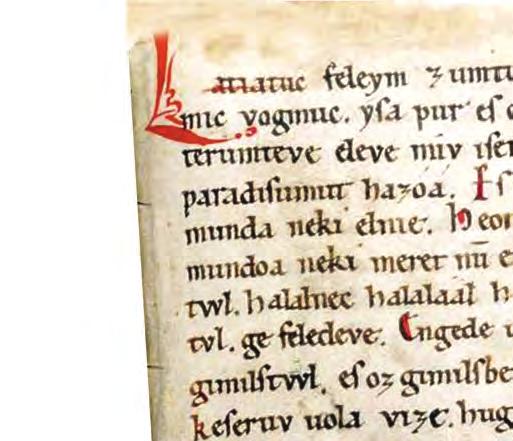 Latiatuc feleym zumtu
mic vogmuc. yſa pur eſ
terumteve eleve miv iſe
paradiſumut hazoa. Eſ
munda neki elnie. Heon
mundoa neki meret nū e
twl. halalnec halalaal h
tvl. ge feledeve. Engede u
gimilſtwl. eſ oz gimilſbe
keſeruv uola vize. hug